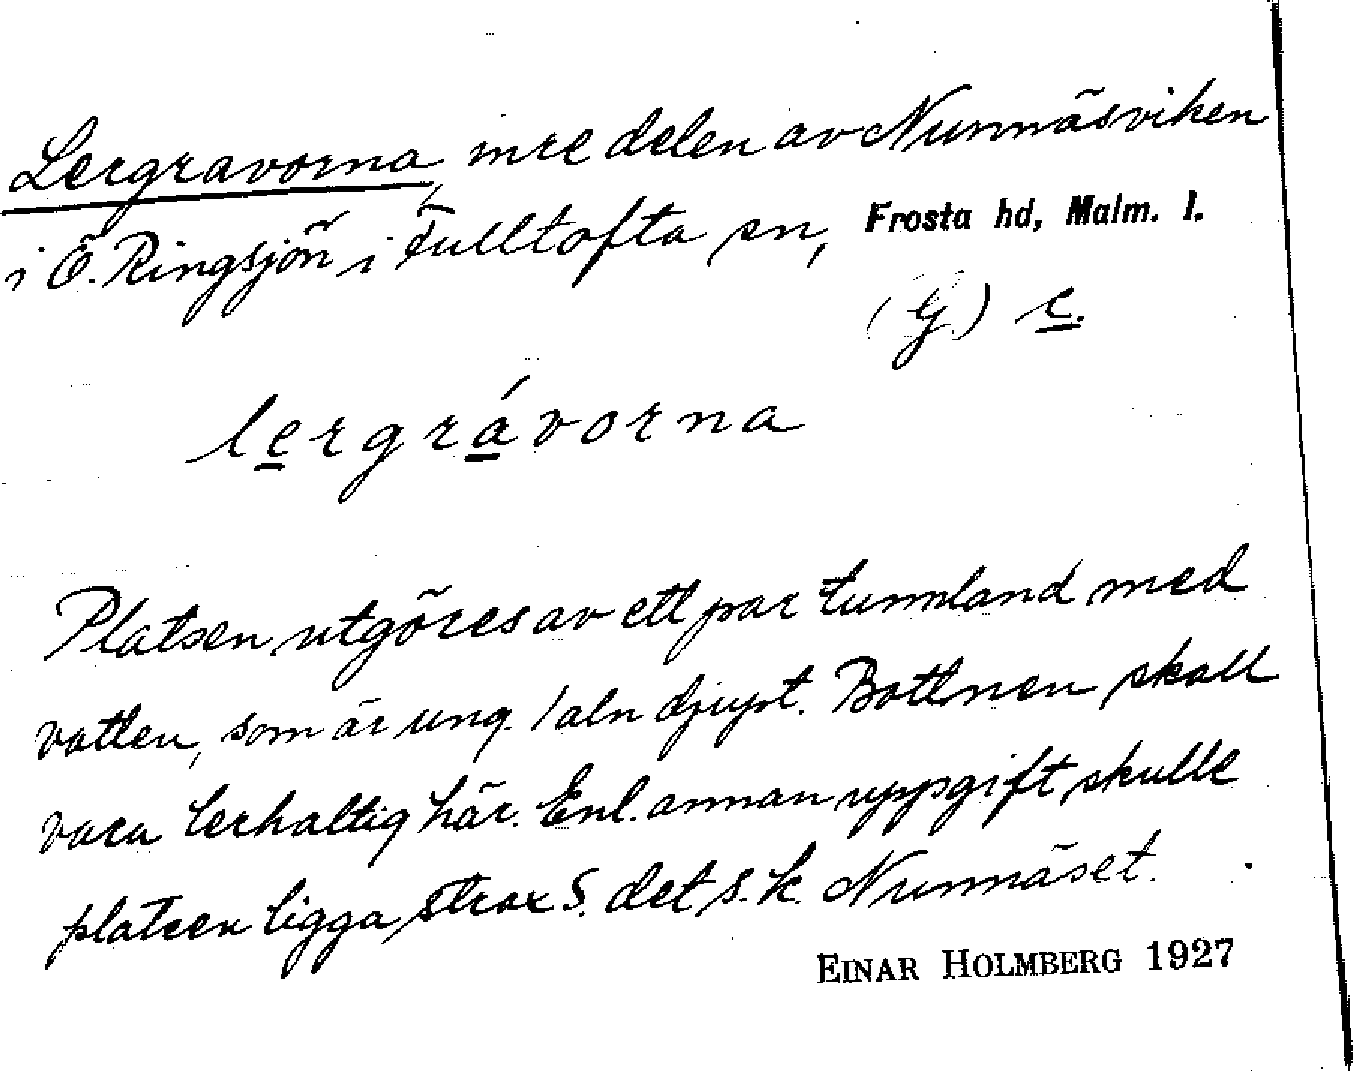 Lergravorna, inre delen av Nunnäsviken
i Ö. Ringsjön i Fulltofta sn, Frosta hd, Malm. l.
(G.) c.
lergrávorna
Platsen utgöres av ett par tunnland med
vatten, som är ung. 1 aln djupt. Bottnen skall
vara lerhaltig här. Enl. annan uppgift skulle
platsen ligga strax S. det s.k. Nunnäset.
EINAR HOLMBERG 1927